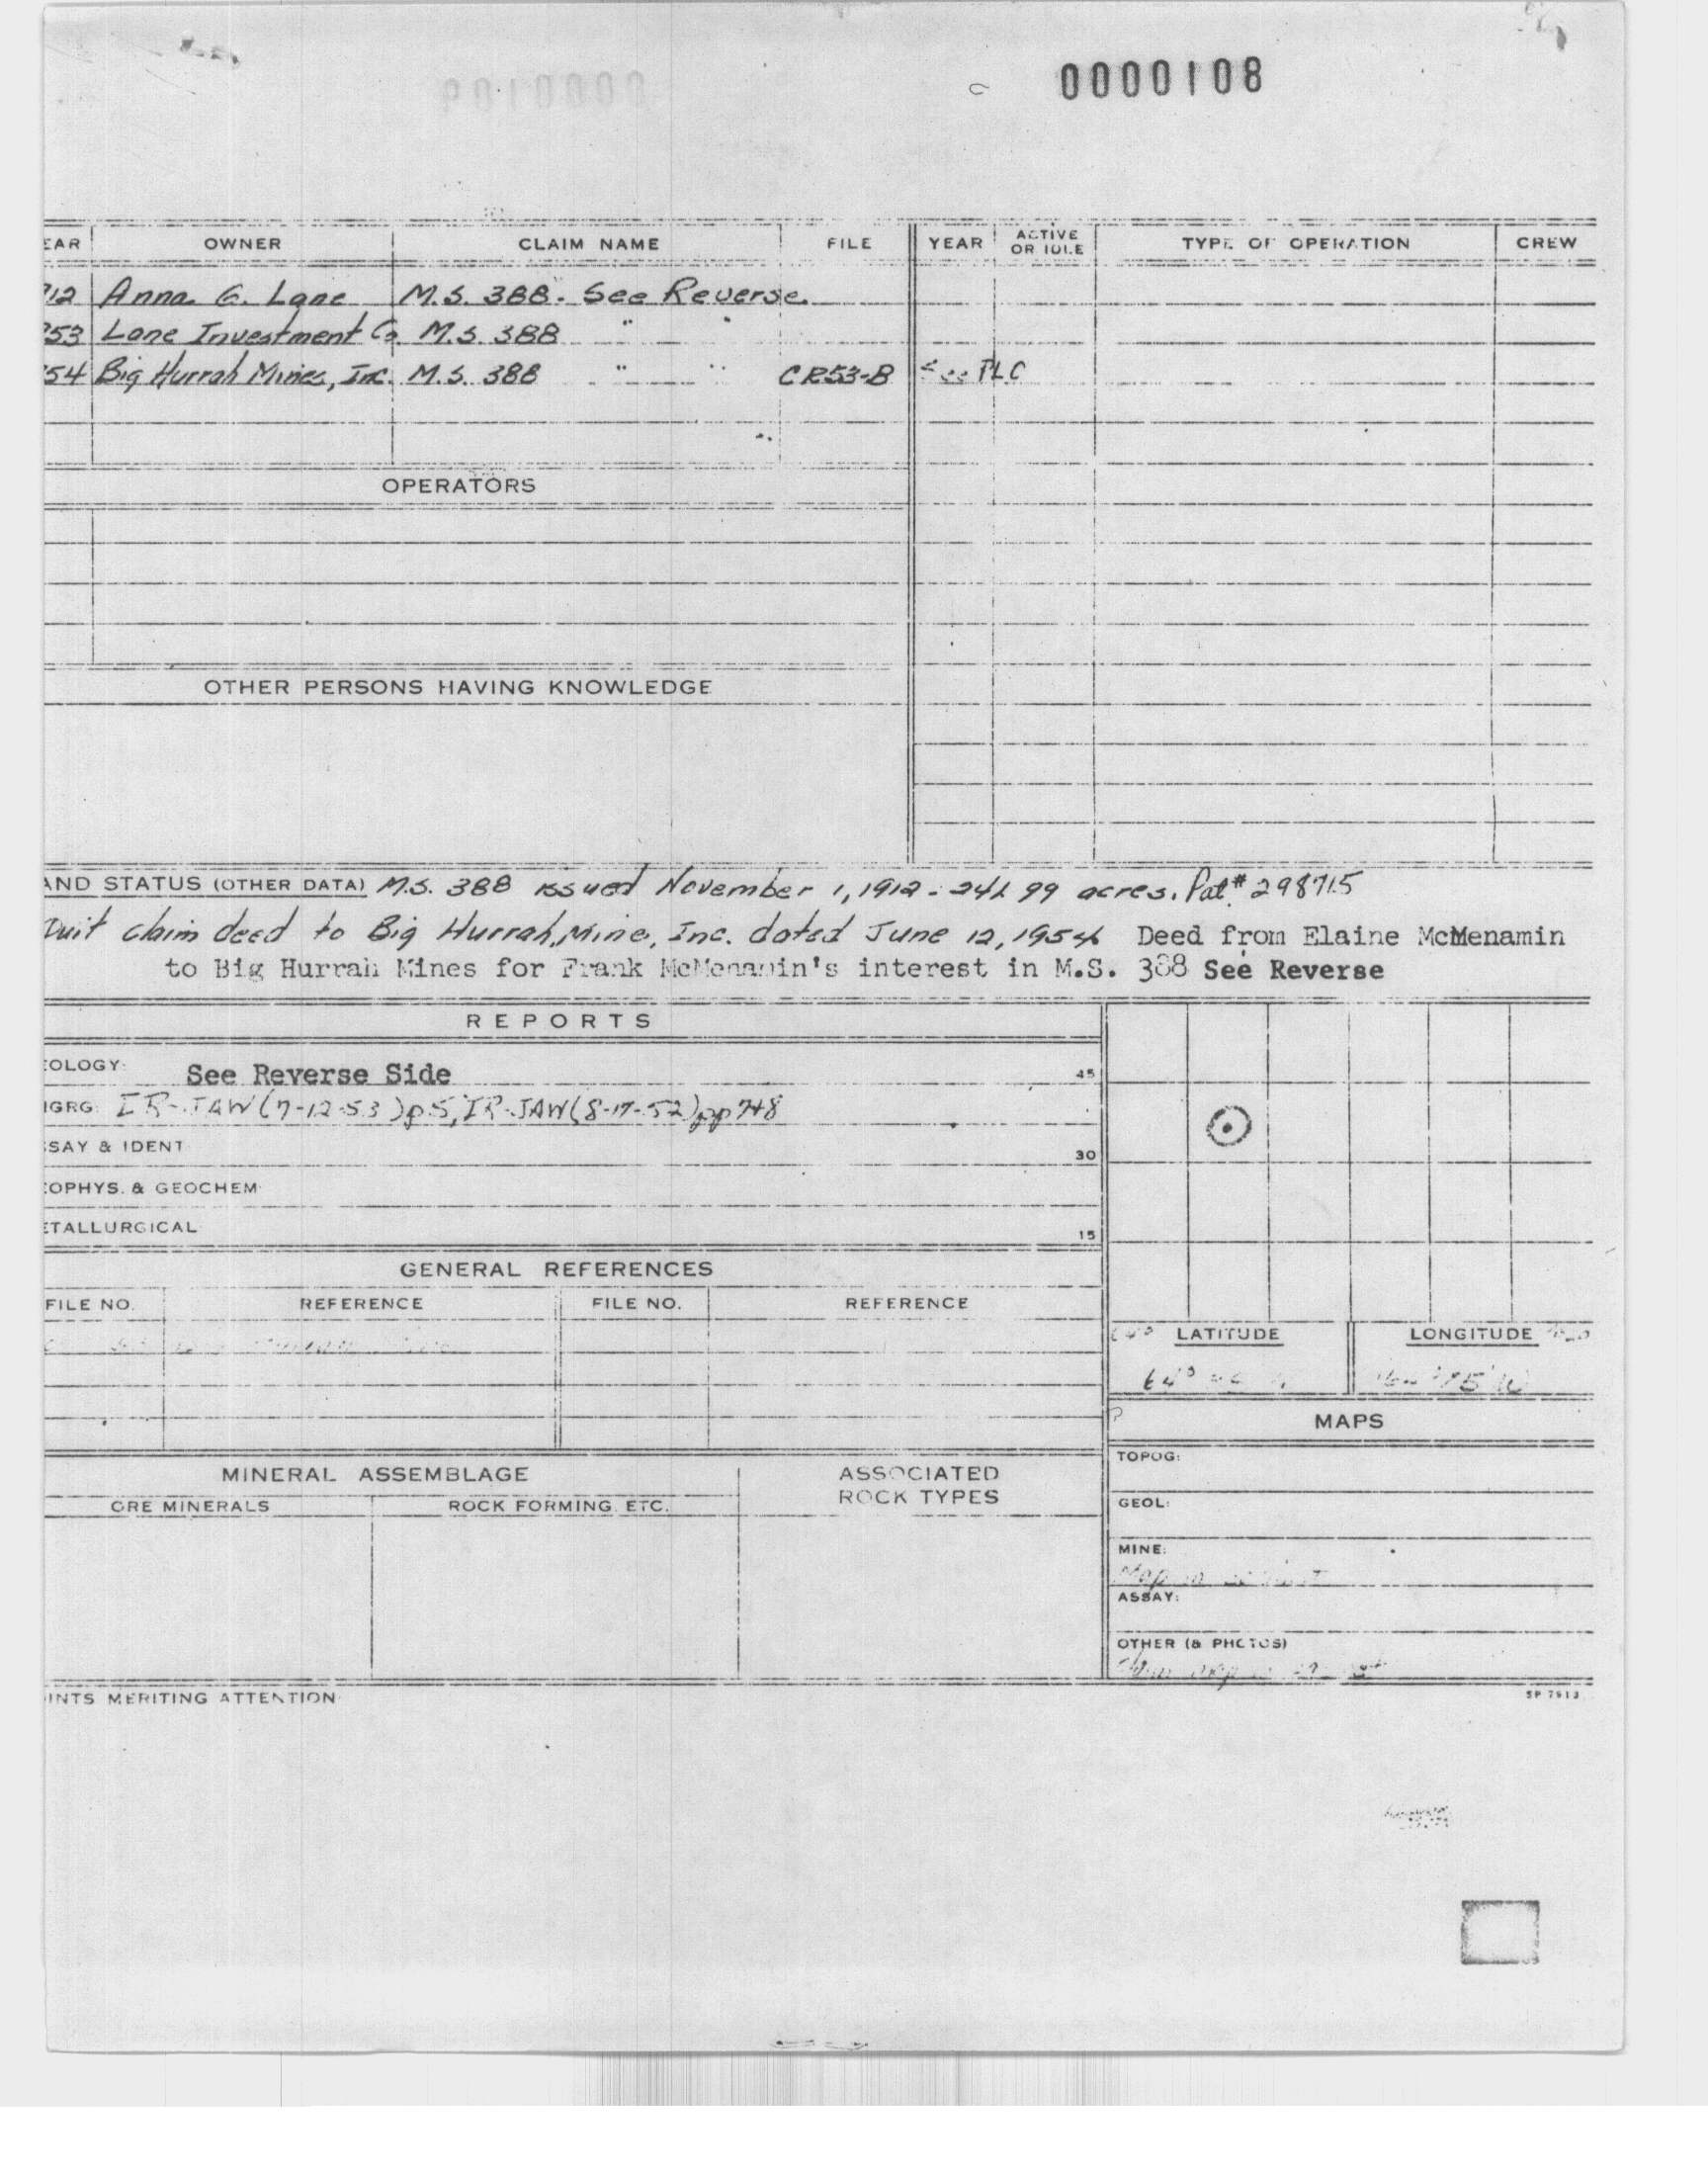 0000108
EAR OWNER CLAIM NAME FILE YEAR ACTIVE OR IDLE TYPE OF OPERATION CREW
912 Anna G. Lane M.S. 388 - See Reverse.
953 Lane Investment Co. M.S. 388 " "
54 Big Hurrah Mines, Inc. M.S. 388 " " CR53-B See PLC
OPERATORS
OTHER PERSONS HAVING KNOWLEDGE
AND STATUS (OTHER DATA) M.S. 388 issued November 1, 1912 - 241.99 acres. Pat.# 298715
Quit claim deed to Big Hurrah Mine, Inc. dated June 12, 1954 Deed from Elaine McMenamin
to Big Hurrah Mines for Frank McMenamin's interest in M.S. 388 See Reverse
REPORTS
EOLOGY: See Reverse Side 45
NGRG: IR-JAW(7-12-53)p5, IR-JAW(8-17-52)pp7+8
SSAY & IDENT 30
EOPHYS. & GEOCHEM
ETALLURGICAL 15
GENERAL REFERENCES
FILE NO. REFERENCE FILE NO. REFERENCE
LATITUDE LONGITUDE
64°
MAPS
MINERAL ASSEMBLAGE ASSOCIATED ROCK TYPES
ORE MINERALS ROCK FORMING, ETC.
TOPOG:
GEOL:
MINE:
Map in
ASSAY:
OTHER (& PHOTOS)
OINTS MERITING ATTENTION
SP 7913